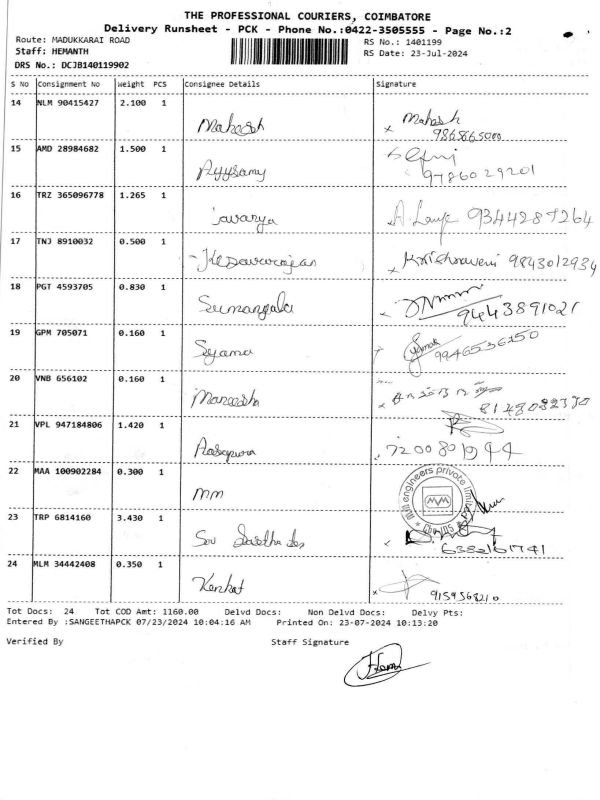 THE PROFESSIONAL COURIERS, COIMBATORE
Delivery Runsheet - PCK - Phone No.:0422-3505555 - Page No.:2
Route: MADUKKARAI ROAD
RS No.: 1401199
Staff: HEMANTH
RS Date: 23-Jul-2024
DRS No.: DCJB140119902
S No Consignment No Weight PCS Consignee Details Signature
14 NLM 90415427 2.100 1
Mahesh Mahash
9865865000
15 AMD 28984682 1.500 1
Ayysamy 9786029201
16 TRZ 365096778 1.265 1
9344287264
17 TNJ 8910032 0.500 1
Kesavarajan Krishnaveni 9843012934
18 PGT 4593705 0.830 1
Sumangala 9443891021
19 GPM 705071 0.160 1
Syama 9946536150
20 VNB 656102 0.160 1
Mareesha
21 VPL 947184806 1.420 1
22 MAA 100902284 0.300 1
mm
MM engineers private limited
23 TRP 6814160 3.430 1
Sri
24 MLM 34442408 0.350 1
Venkat 9159568210
Tot Docs: 24 Tot COD Amt: 1160.00 Delvd Docs: Non Delvd Docs: Delvy Pts:
Entered By :SANGEETHAPCK 07/23/2024 10:04:16 AM Printed On: 23-07-2024 10:13:20
Verified By Staff Signature